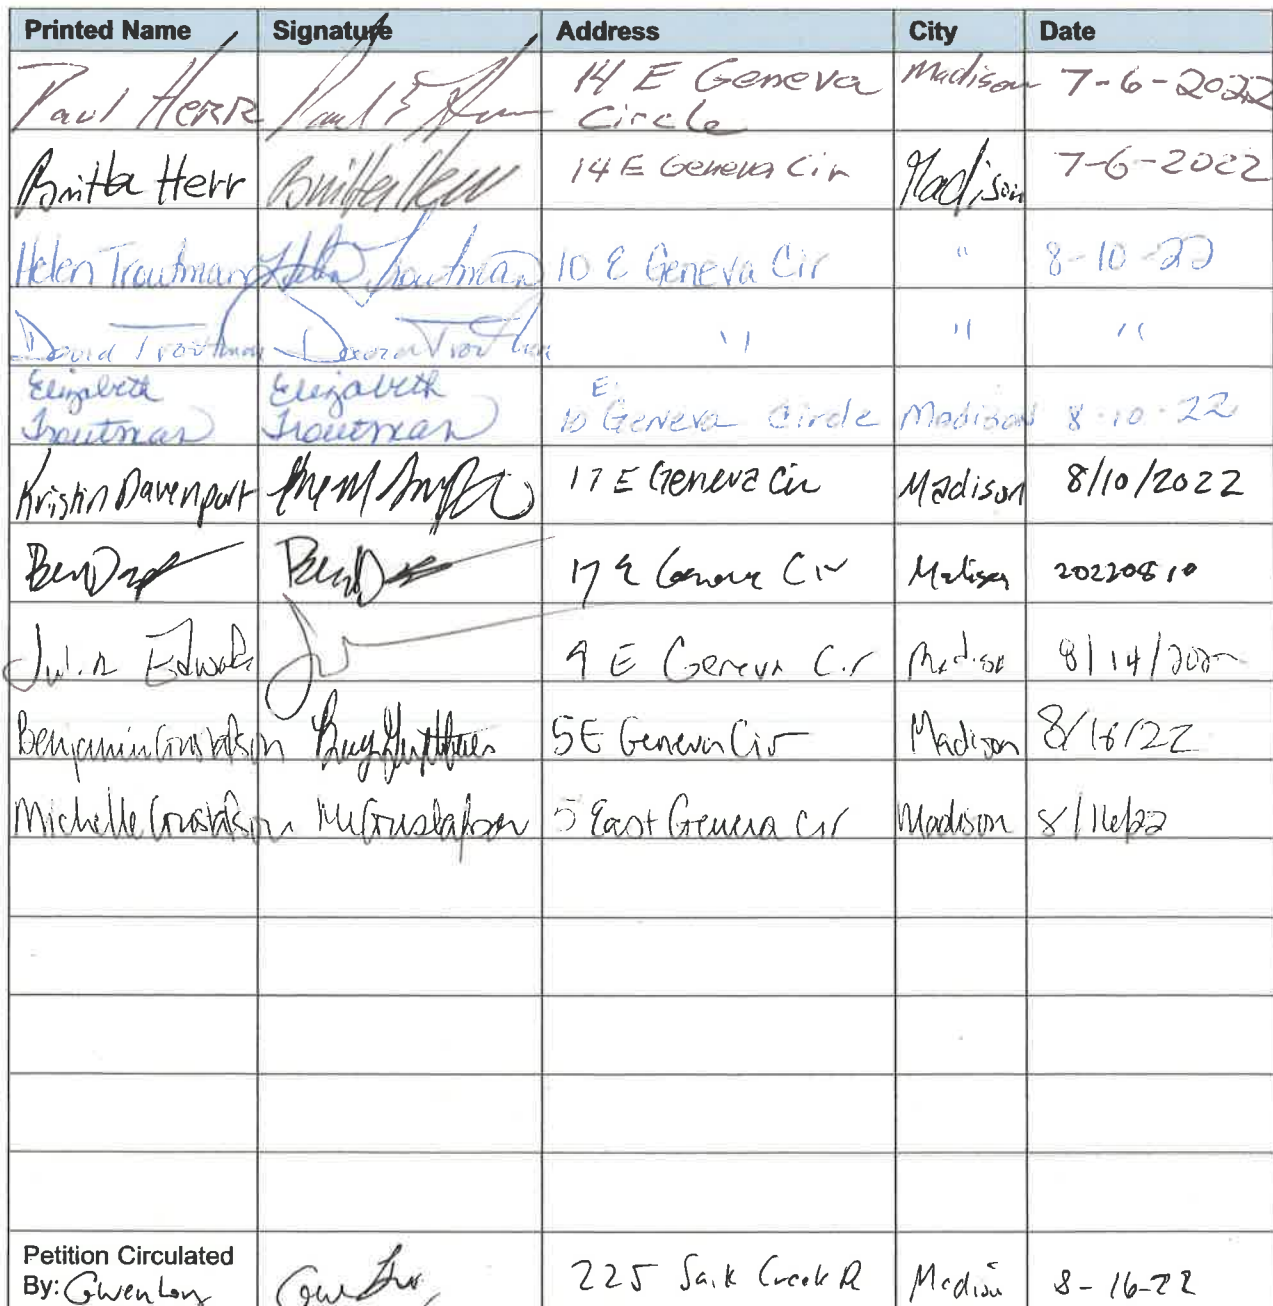 Printed Name Signature Address City Date
Paul Herr Paul E Herr 14 E Geneva Circle Madison 7-6-2022
Britta Herr Britta Herr 14 E Geneva Cir Madison 7-6-2022
Helen Troutman Helen Troutman 10 E Geneva Cir " 8-10-22
David Troutman David Troutman " " "
Elizabeth Troutman Elizabeth Troutman 10 E. Geneva Circle Madison 8-10-22
Kristin Davenport 17 E Geneva Cir Madison 8/10/2022
Ben Ben 17 E Geneva Cir Madison 20220810
Edwards 9 E Geneva Cir Madison 8/14/2022
Benjamin Gustafson 5 E Geneva Cir Madison 8/16/22
Michelle Gustafson M Gustafson 5 East Geneva Cir Madison 8/16/22
Petition Circulated
By: Gwen Long 225 Sauk Creek Dr Madison 8-16-22